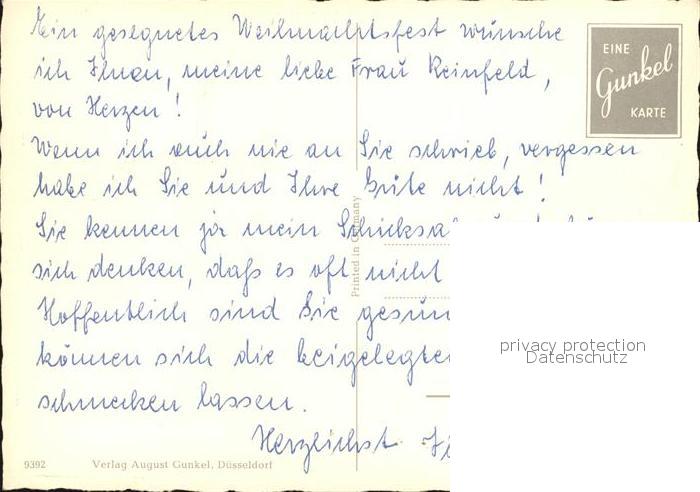 Ein gesegnetes Weihnachtsfest wünsche
ich Ihnen, meine liebe Frau Reinfeld,
von Herzen!
Wenn ich auch nie an Sie schrieb, vergessen
habe ich Sie und Ihre Güte nicht!
Sie kennen ja mein
sich denken, daß es oft nicht
Hoffentlich sind Sie
können sich die
schmecken lassen.
Herzlichst
EINE
Gunkel
KARTE
Printed in Germany
privacy protection
Datenschutz
9392 Verlag August Gunkel, Düsseldorf